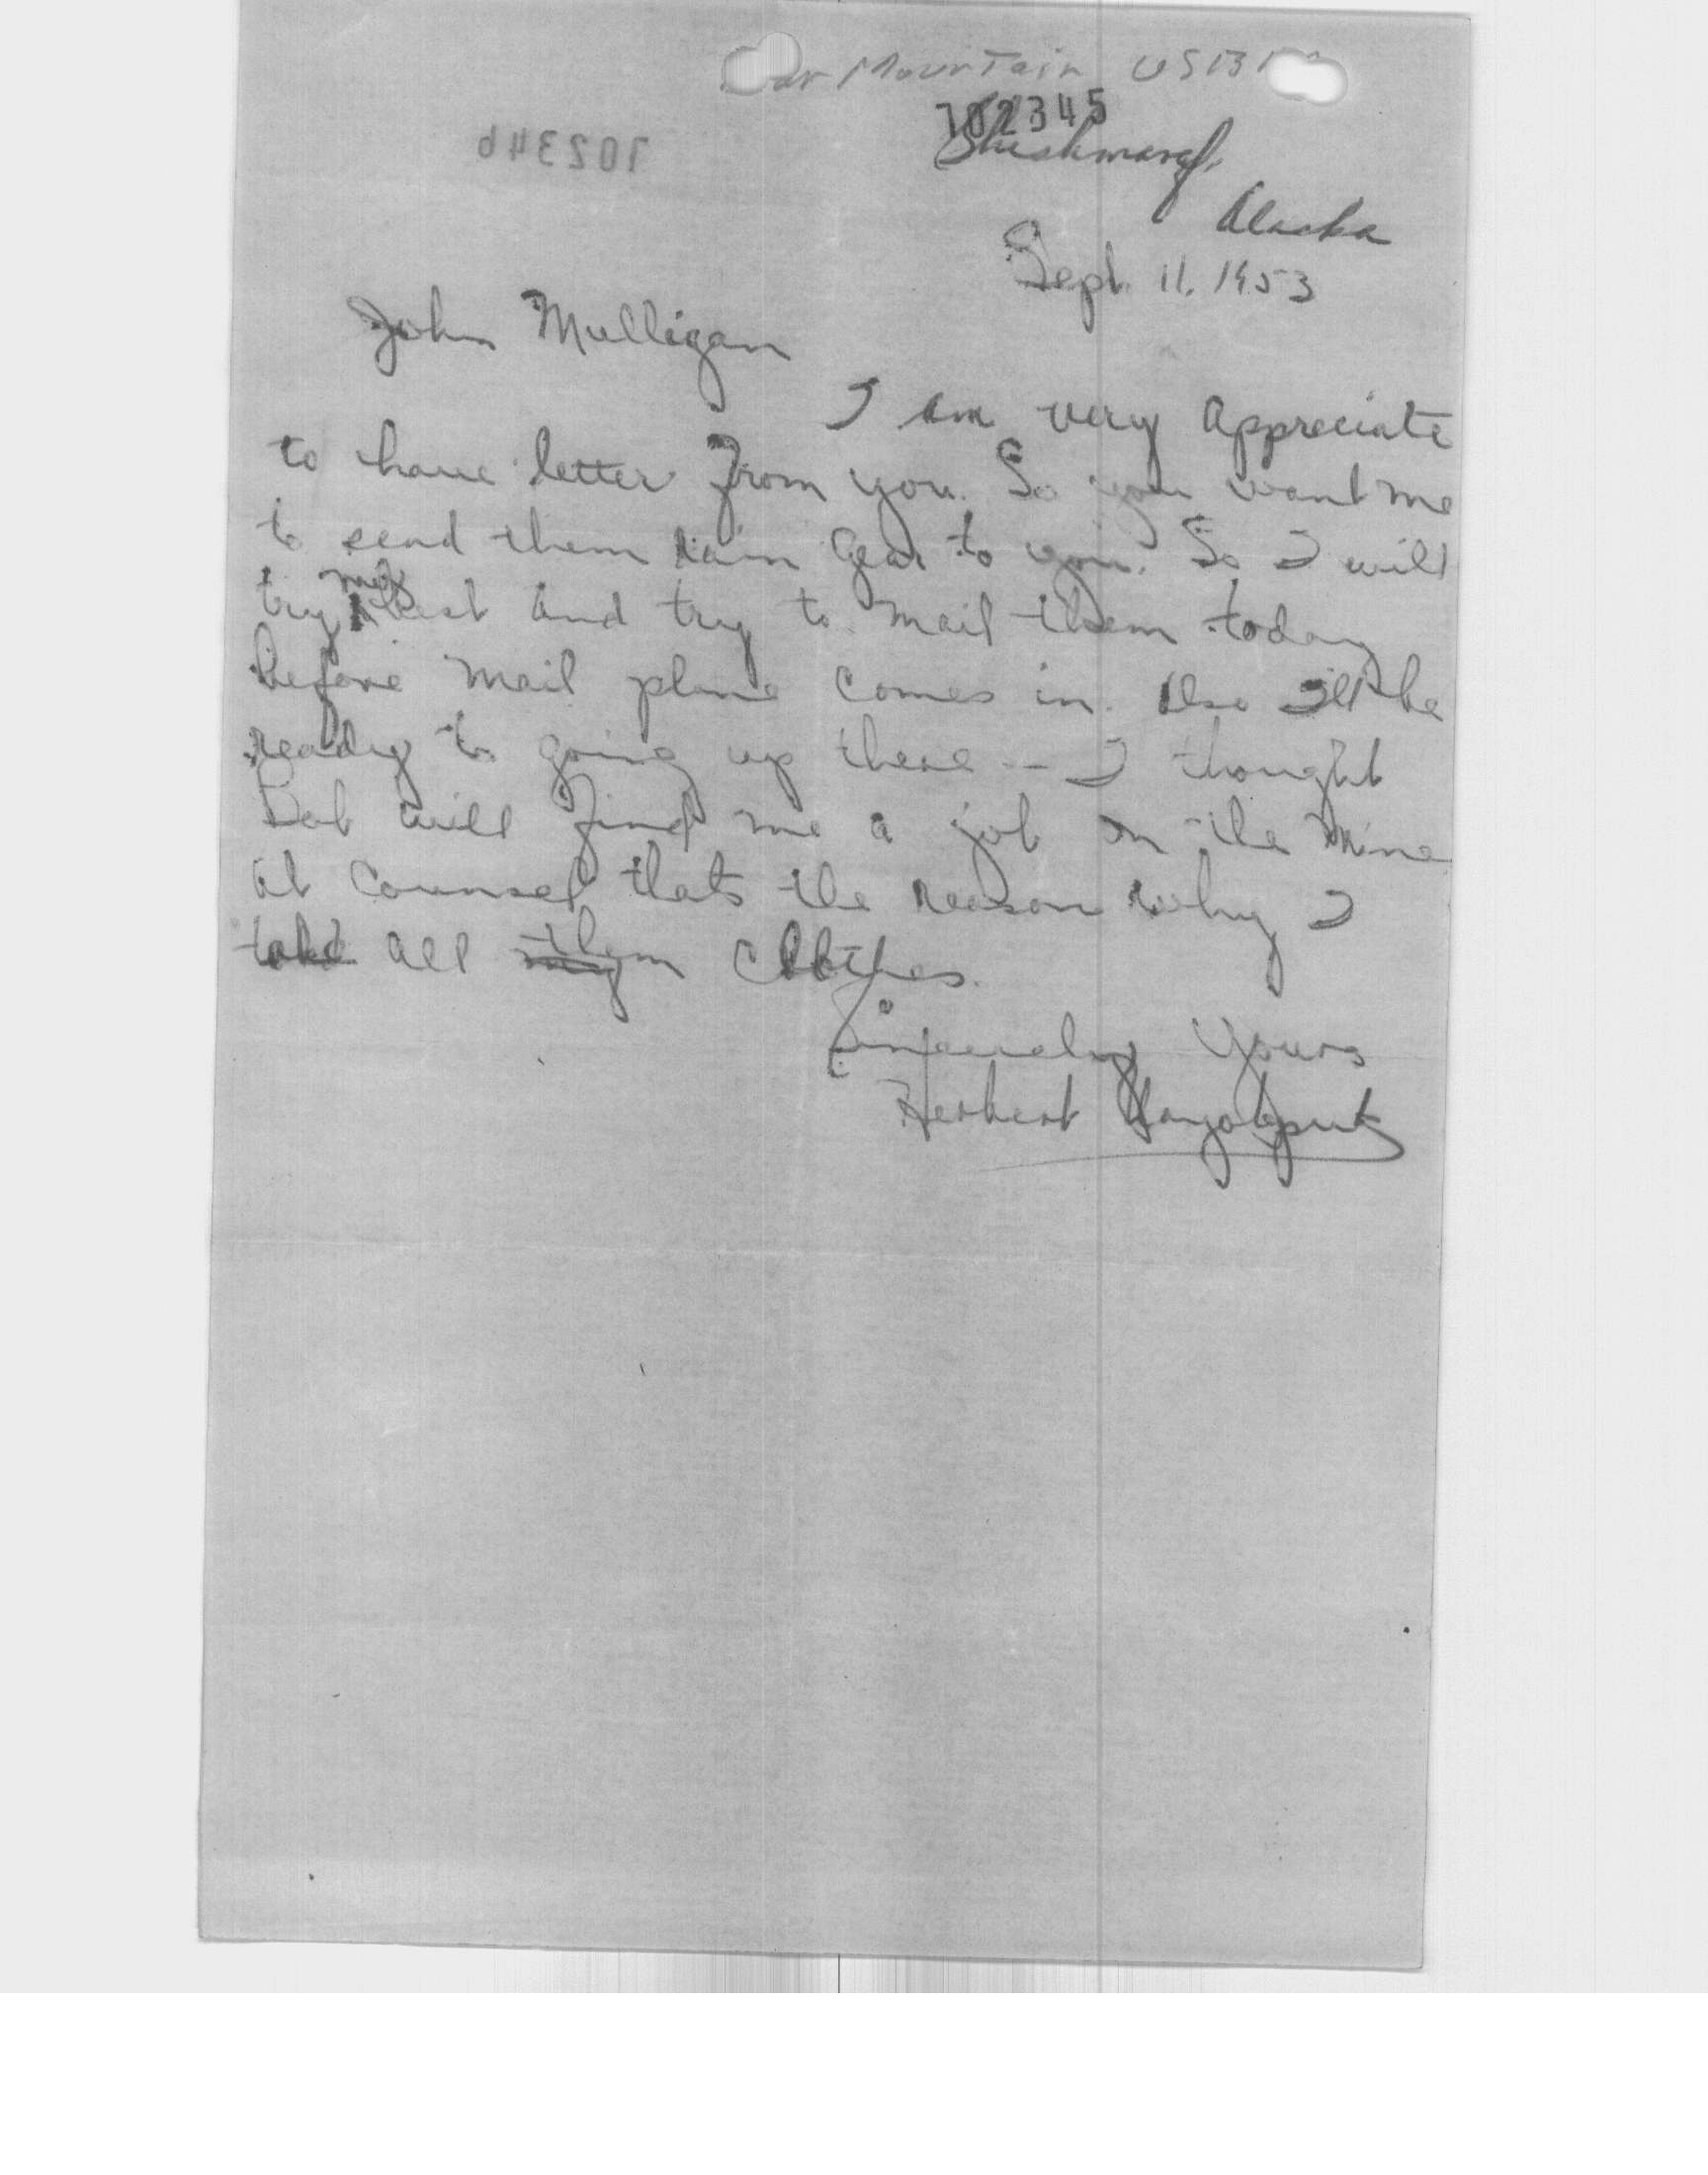 Mountain USB
702345
702346
Shishmaref,
Alaska
Sept. 11. 1953
John Mulligan
I am very Appreciate
to have letter From you. So you want me
to send them rain Gear to you. So I will
try my best and try to Mail them today
before Mail plane Comes in. Also I'll be
ready to going up there -- I thought
Bob will Find me a job on the Mine
at Counsel thats the reason why I
take all them Clothes.
Sincerely Yours
Herbert